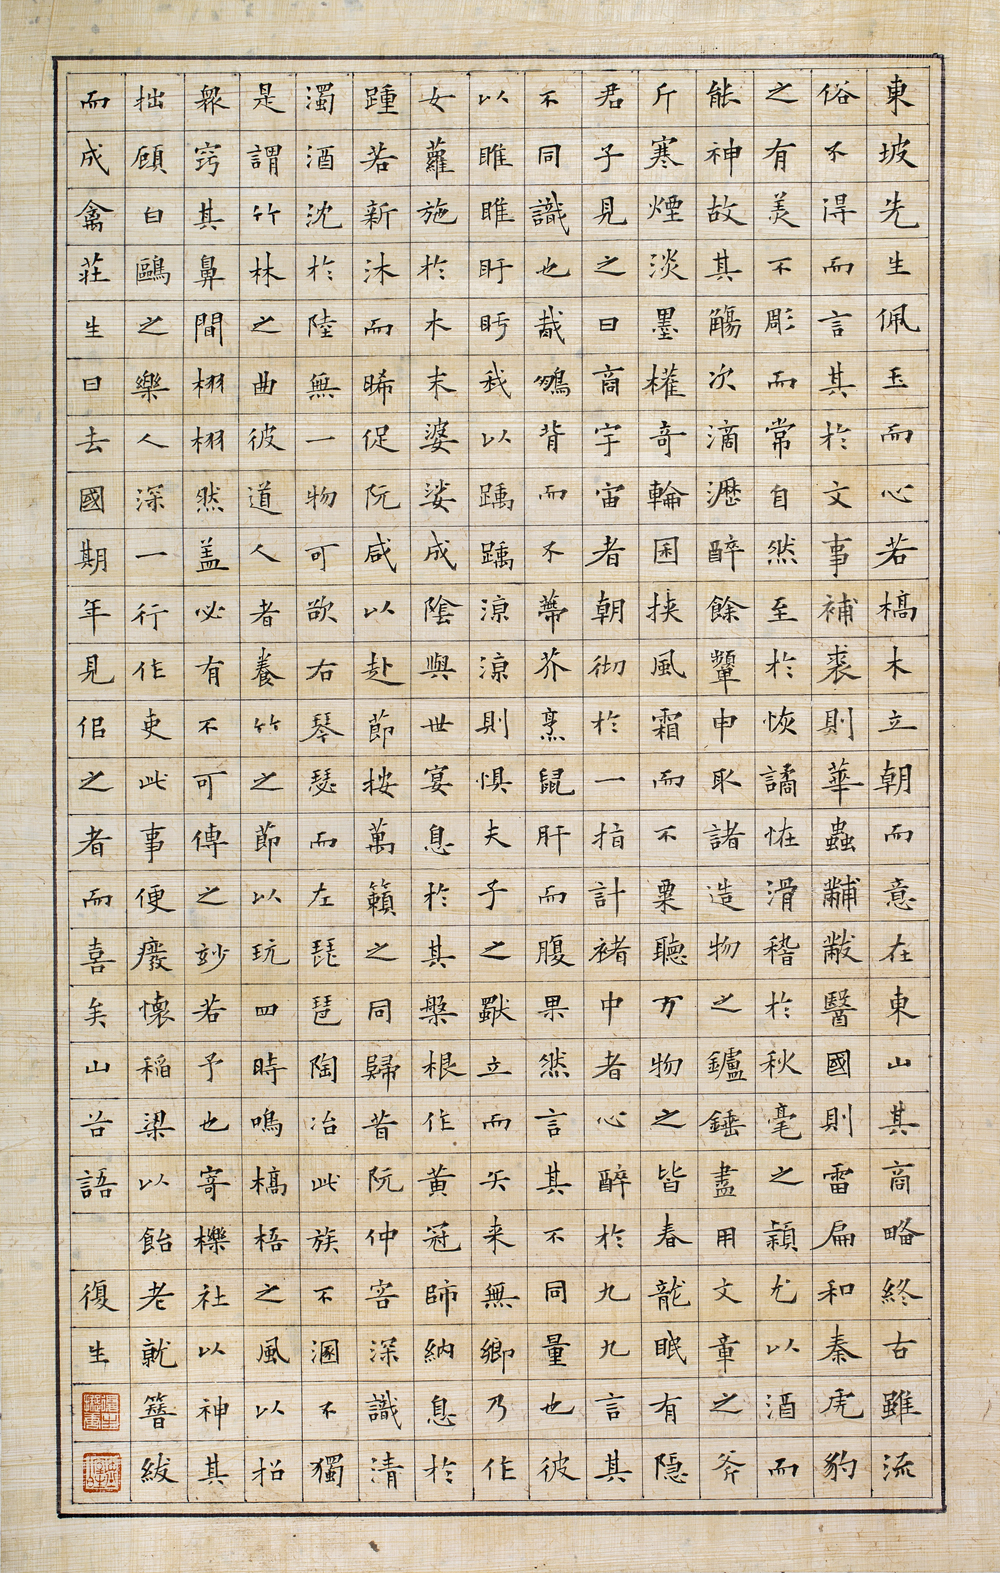 東坡先生佩玉而心若槁木立朝而意在東山其商略終古雖流
俗不得而言其於文事補袞則華蟲黼黻醫國則雷扁和秦虎豹
之有美不彫而常自然至於恢譎恠滑稽於秋毫之穎尤以酒而
能神故其觴次滴瀝醉餘顰申取諸造物之鑪錘盡用文章之斧
斤寒煙淡墨權奇輪囷挾風霜而不栗聽万物之皆春龍眠有隱
君子見之曰商宇宙者朝彻於一指計褚中者心醉於九九言其
不同識也哉鵬背而不蔕芥烹鼠肝而腹果然言其不同量也彼
以睢睢盱盱我以踽踽涼涼則惧夫子之獸立而矢来無鄉乃作
女蘿施於木末婆娑成陰與世宴息於其槃根作黃冠師納息於
踵若新沐而晞促阮咸以赴節按萬籟之同歸昔阮仲容深識清
濁酒沈於陸無一物可欲右琴瑟而左琵琶陶冶此族不溷不獨
是謂竹林之曲彼道人者養竹之節以玩四時鳴槁梧之風以招
衆竅其鼻間栩栩然盖必有不可傳之妙若予也寄櫟社以神其
拙顧白鷗之樂人深一行作吏此事便廢懷稻粱以飴老就簪紱
而成禽莊生曰去國期年見佀之者而喜矣山谷語 復生